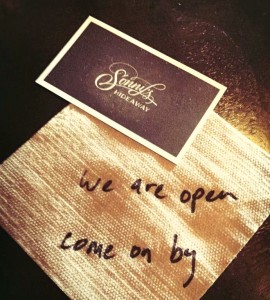 Sonny's
HIDEAWAY
we are open
come on by